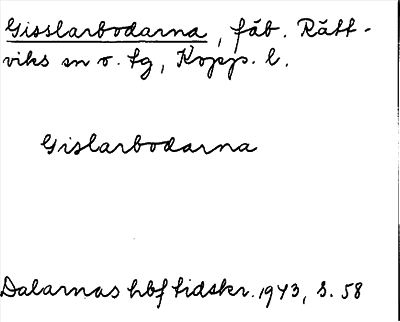 Gisslarbodarna, fäb. Rätt-
viks sn o. tg, Kopp. l.
Gislarbodarna
Dalarnas hbf tidskr. 1943, s. 58